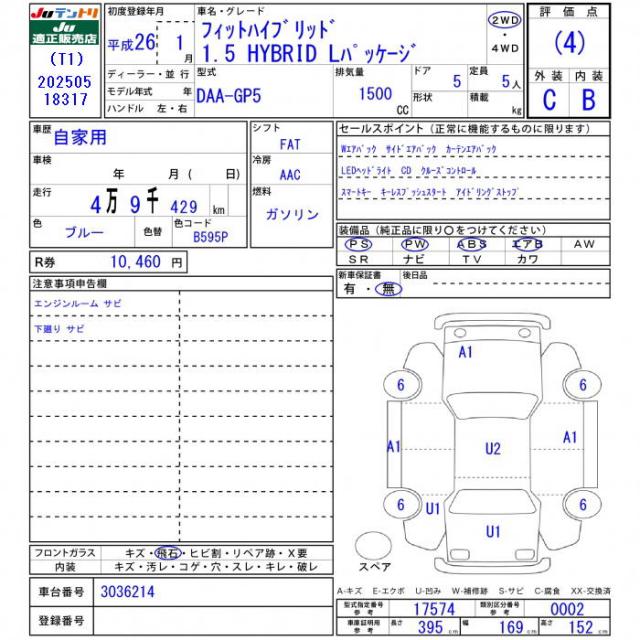 Juテントリ
Ju
適正販売店
(T1)
202505
18317
初度登録年月
平成26 1月
ディーラー・並 行
モデル年式 年
ハンドル 左・右
車名・グレード
フィットハイブリッド
1.5 HYBRID Lパッケージ
2WD
・
4WD
型式
DAA-GP5
排気量
1500
CC
ドア
5
形状
定員
5人
積載
kg
評価点
(4)
外装 内装
C B
車歴
自家用
車検
年 月 ( 日)
走行
4万 9千 429 km
色
ブルー
色替
色コード
B595P
シフト
FAT
冷房
AAC
燃料
ガソリン
R券 10,460 円
セールスポイント(正常に機能するものに限ります)
Wエアバック サイドエアバック カーテンエアバック
LEDヘッドライト CD クルーズコントロール
スマートキー キーレスプッシュスタート アイドリングストップ
装備品(純正品に限り○をつけてください)
PS PW ABS エアB AW
SR ナビ TV カワ
新車保証書
有・無
後日品
注意事項申告欄
エンジンルーム サビ
下廻り サビ
A1
6 6
A1 U2 A1
6 6
U1
U1
スペア
フロントガラス キズ・飛石・ヒビ割・リペア跡・X要
内装 キズ・汚レ・コゲ・穴・スレ・キレ・破レ
車台番号 3036214
登録番号
A-キズ E-エクボ U-凹み W-補修跡 S-サビ C-腐食 XX-交換済
型式指定番号 17574 類別区分番号 0002
車庫証明用参考 長さ 395 cm 幅 169 cm 高さ 152 cm